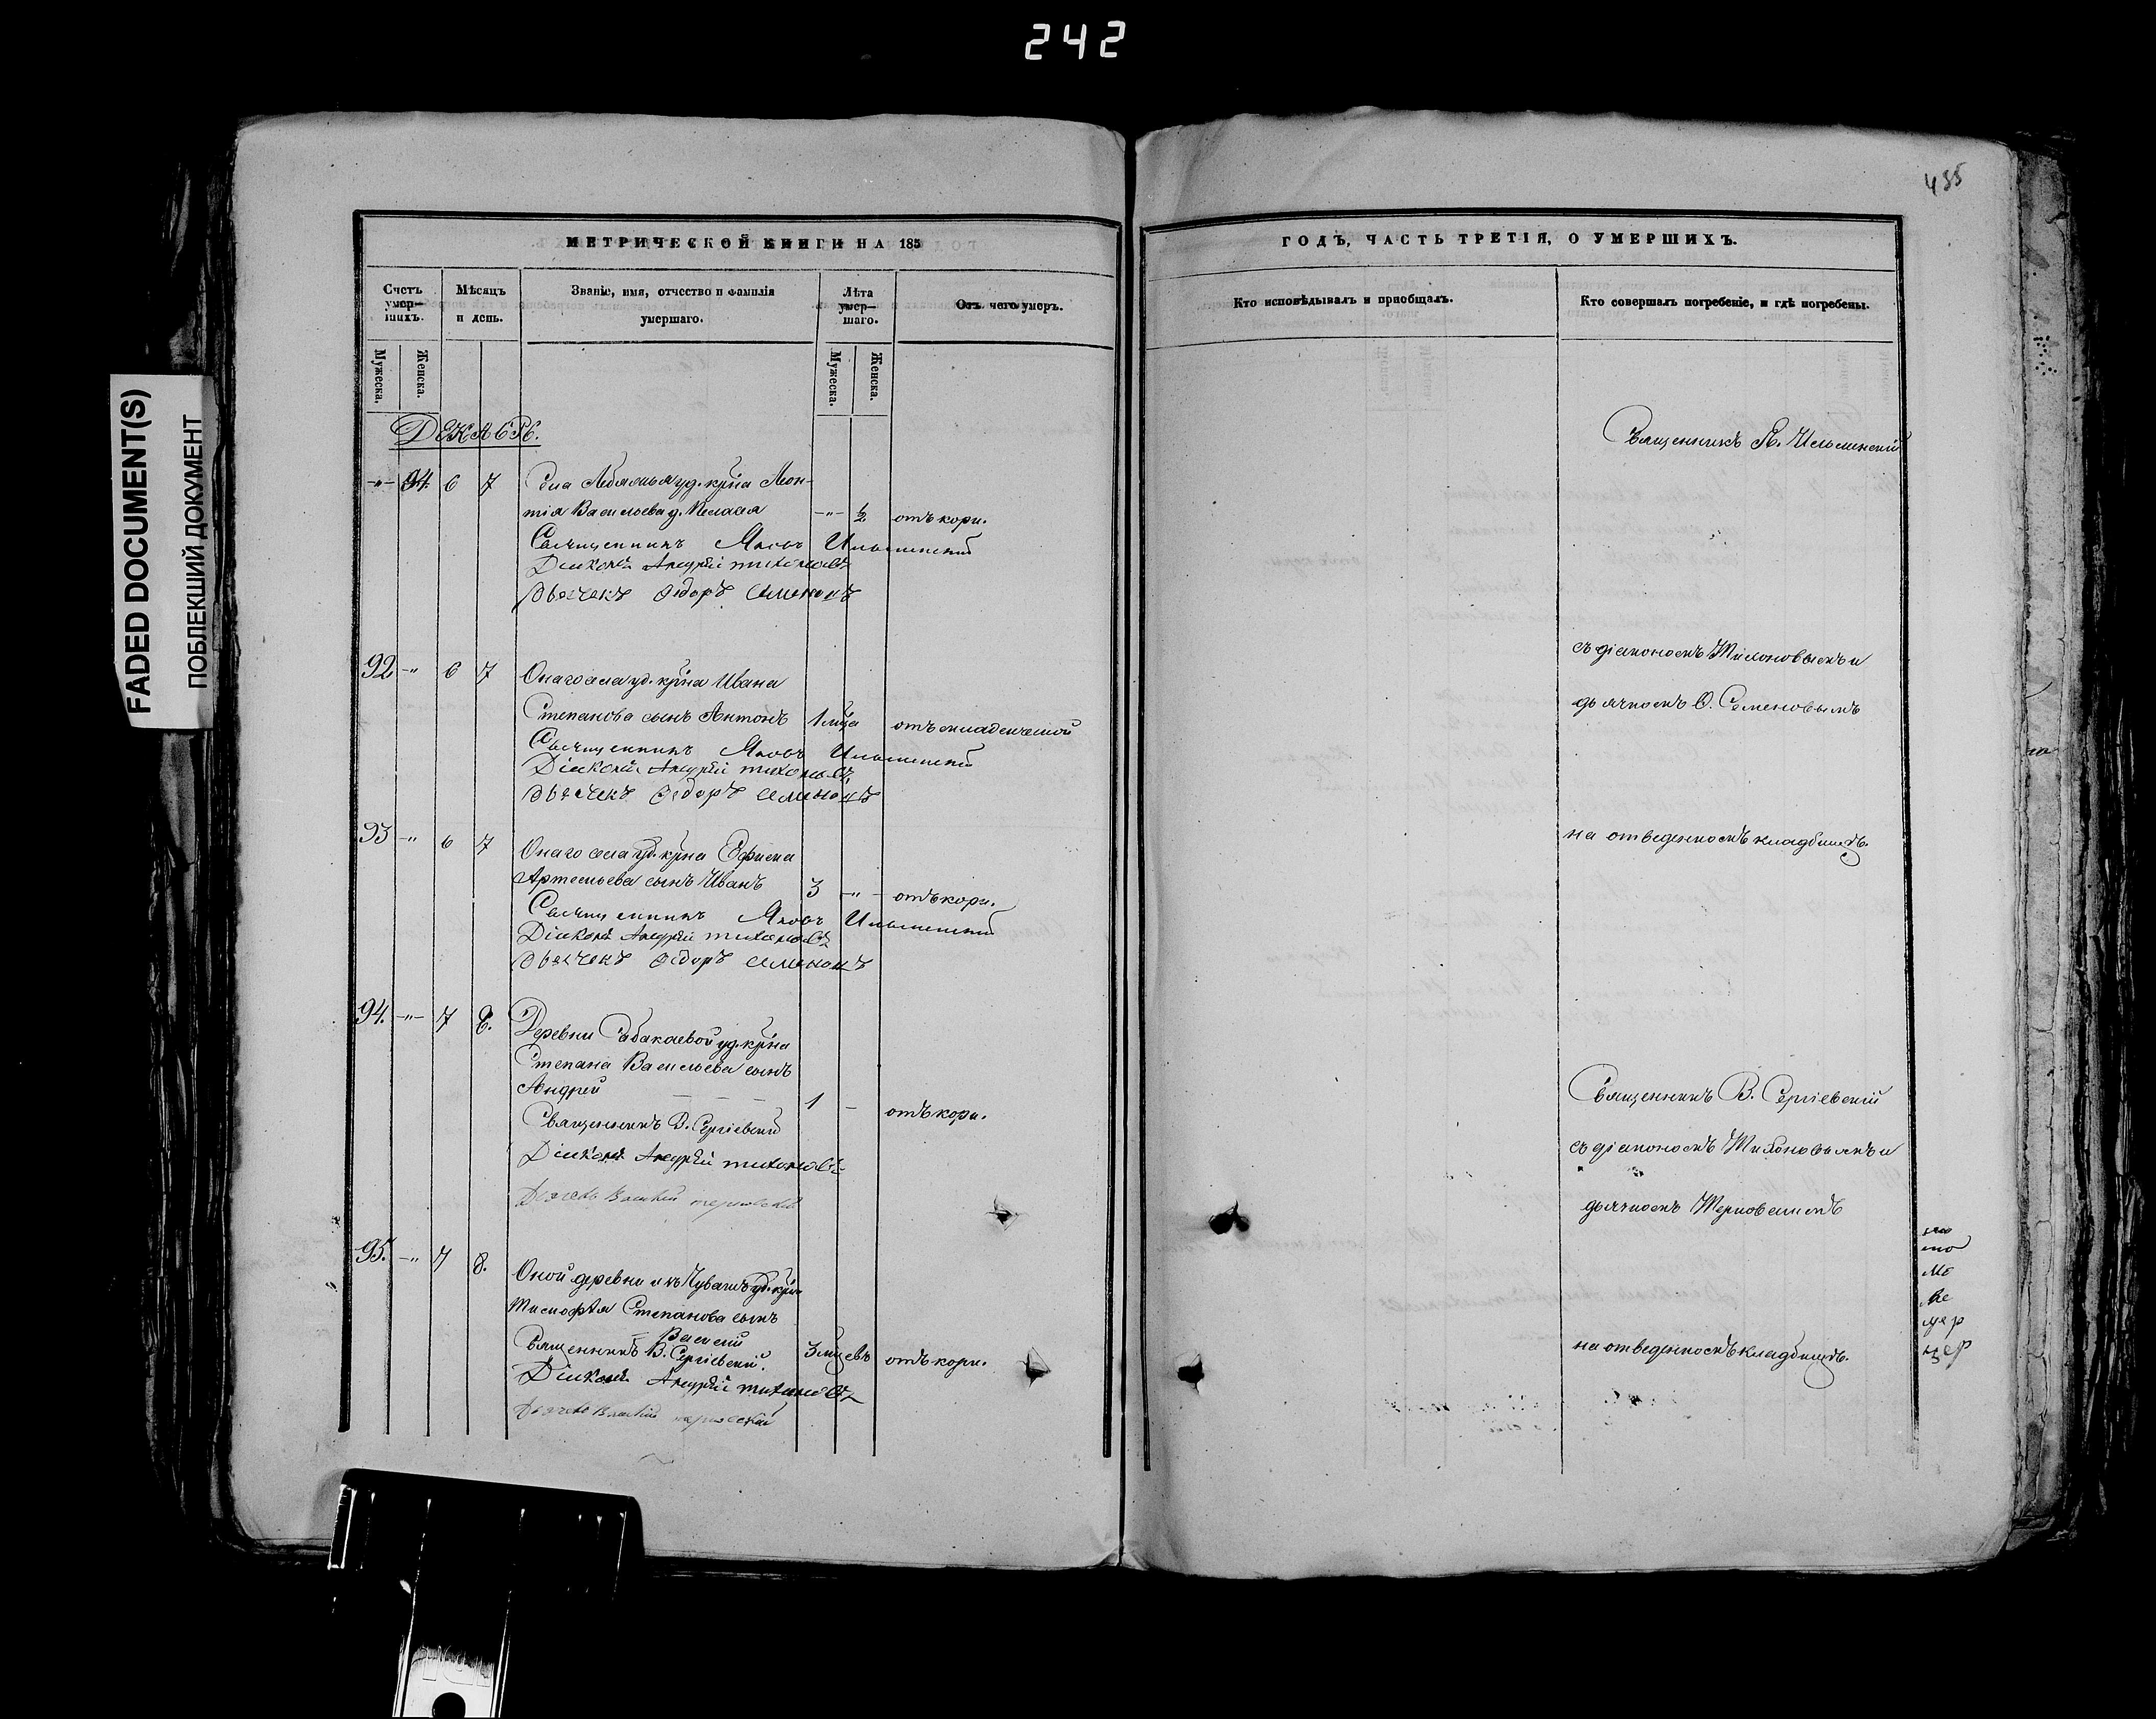 242
FADED DOCUMENT(S)
ПОБЛЕКШИЙ ДОКУМЕНТ
МЕТРИЧЕСКОЙ КНИГИ НА 185
Счетъ умер-шихъ.
Мѣсяцъ и день.
Званіе, имя, отчество и фамилія умершаго.
Лѣта умер-шаго.
Отъ чего умеръ.
Мужеска.
Женска.
Мужеска.
Женска.
Декабрь.
-"- 94. 6 7 Села уд. крна Леон-
тія Васильева д. Пелагея -"- ½ отъ кори.
Священникъ Яковъ Ильминскій
Діаконъ Андрей Тихоновъ
Дьячекъ Ѳедоръ Семеновъ
92 -"- 6 7 Онаго села уд. крна Ивана
Степанова сынъ Антонъ 1 мца отъ младенческой
Священникъ Яковъ Ильминскій
Діаконъ Андрей Тихоновъ
Дьячекъ Ѳедоръ Семеновъ
93 -"- 6 7 Онаго села уд. крна Ефима
Артемьева сынъ Иванъ 3 -"- отъ кори.
Священникъ Яковъ Ильминскій
Діаконъ Андрей Тихоновъ
Дьячекъ Ѳедоръ Семеновъ
94. -"- 7 8. Деревни Сабакаевой уд. крна
Степана Васильева сынъ
Андрей 1 - отъ кори.
Священникъ В. Сергіевскій
Діаконъ Андрей Тихоновъ
Дьячекъ Василій Терновскій
95. -"- 7 8. Оной деревни изъ Чувашъ уд. крн.
Тимофѣя Степанова сынъ
Василій 3 мцевъ отъ кори.
Священникъ В. Сергіевскій.
Діаконъ Андрей Тихоновъ
Дьячекъ Василій Терновскій
455
ГОДЪ, ЧАСТЬ ТРЕТІЯ, О УМЕРШИХЪ.
Кто исповѣдывалъ и пріобщалъ.
Кто совершалъ погребеніе, и гдѣ погребены.
Священникъ Я. Ильминскій
съ діакономъ Тихоновымъ и
дьячкомъ Ѳ. Семеновымъ
на отведенномъ кладбищѣ.
Священникъ В. Сергіевскій
съ діакономъ Тихоновымъ и
дьячкомъ Терновскимъ
на отведенномъ кладбищѣ.